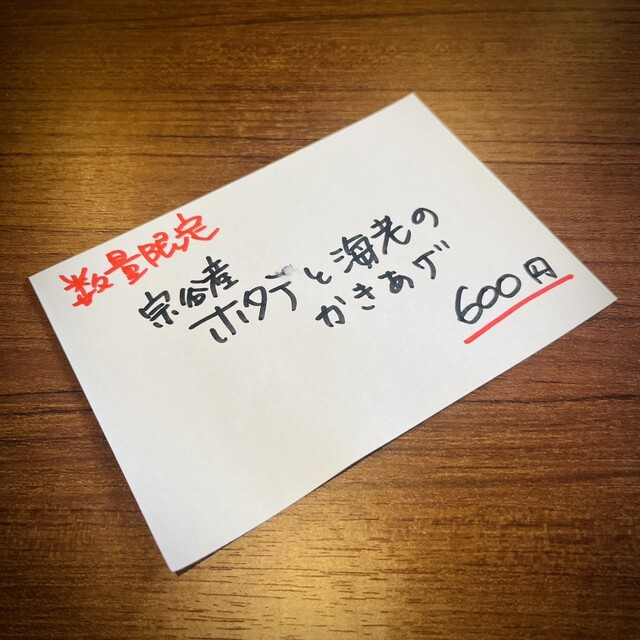 数量限定
宗谷産
ホタテと海老の
かきあげ
600円